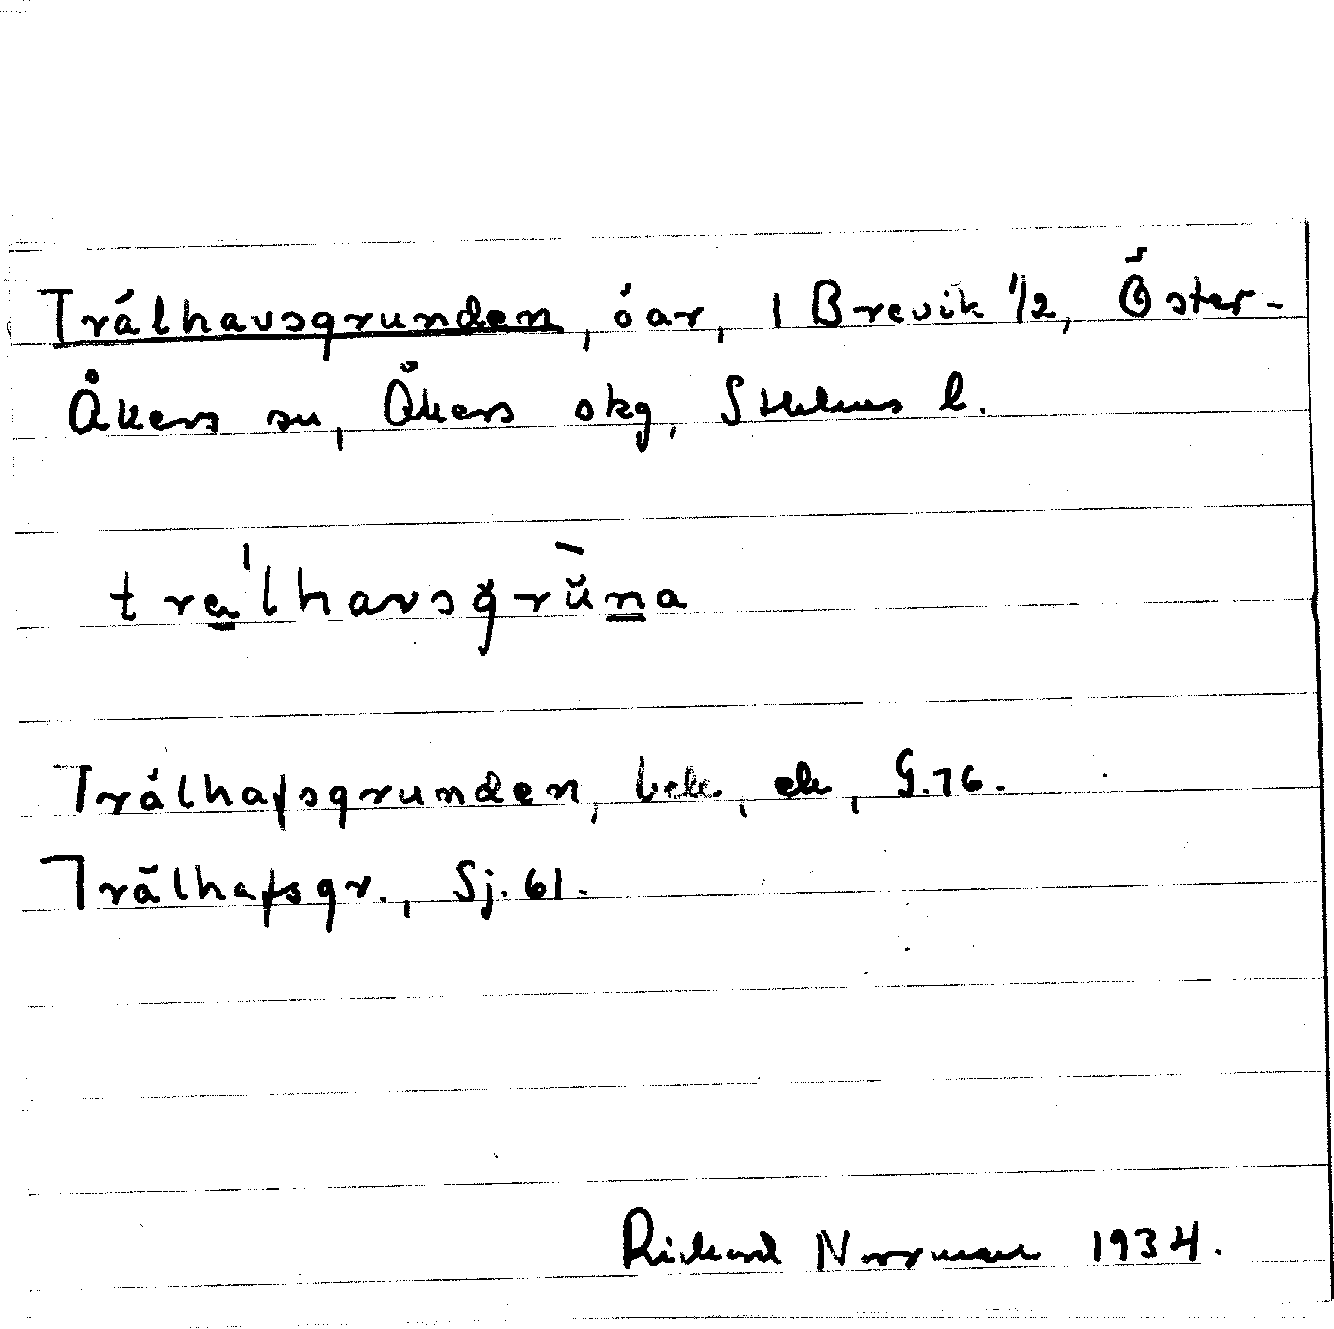 Trälhavsgrunden, öar, 1 Brevik 1/2, Öster-
Åkers sn, Åkers skg, Sthlms l.
tra'lhavsgrŭ̀na
Trälhafsgrunden, bek, ek, G.76.
Trälhafsgr., Sj. 61.
Rickard Norrman 1934.